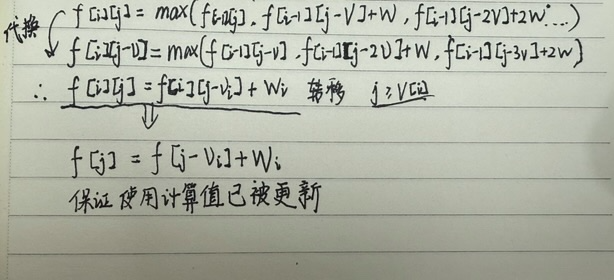 代换 f[i][j] = max(f[i-1][j], f[i-1][j-V]+W, f[i-1][j-2V]+2W...)
f[i][j-v] = max(f[i-1][j-v], f[i-1][j-2v]+W, f[i-1][j-3v]+2w)
∴ f[i][j] = f[i][j-vi]+Wi 转移 j≥V[i]
⇓
f[j] = f[j-Vi]+Wi
保证使用计算值已被更新